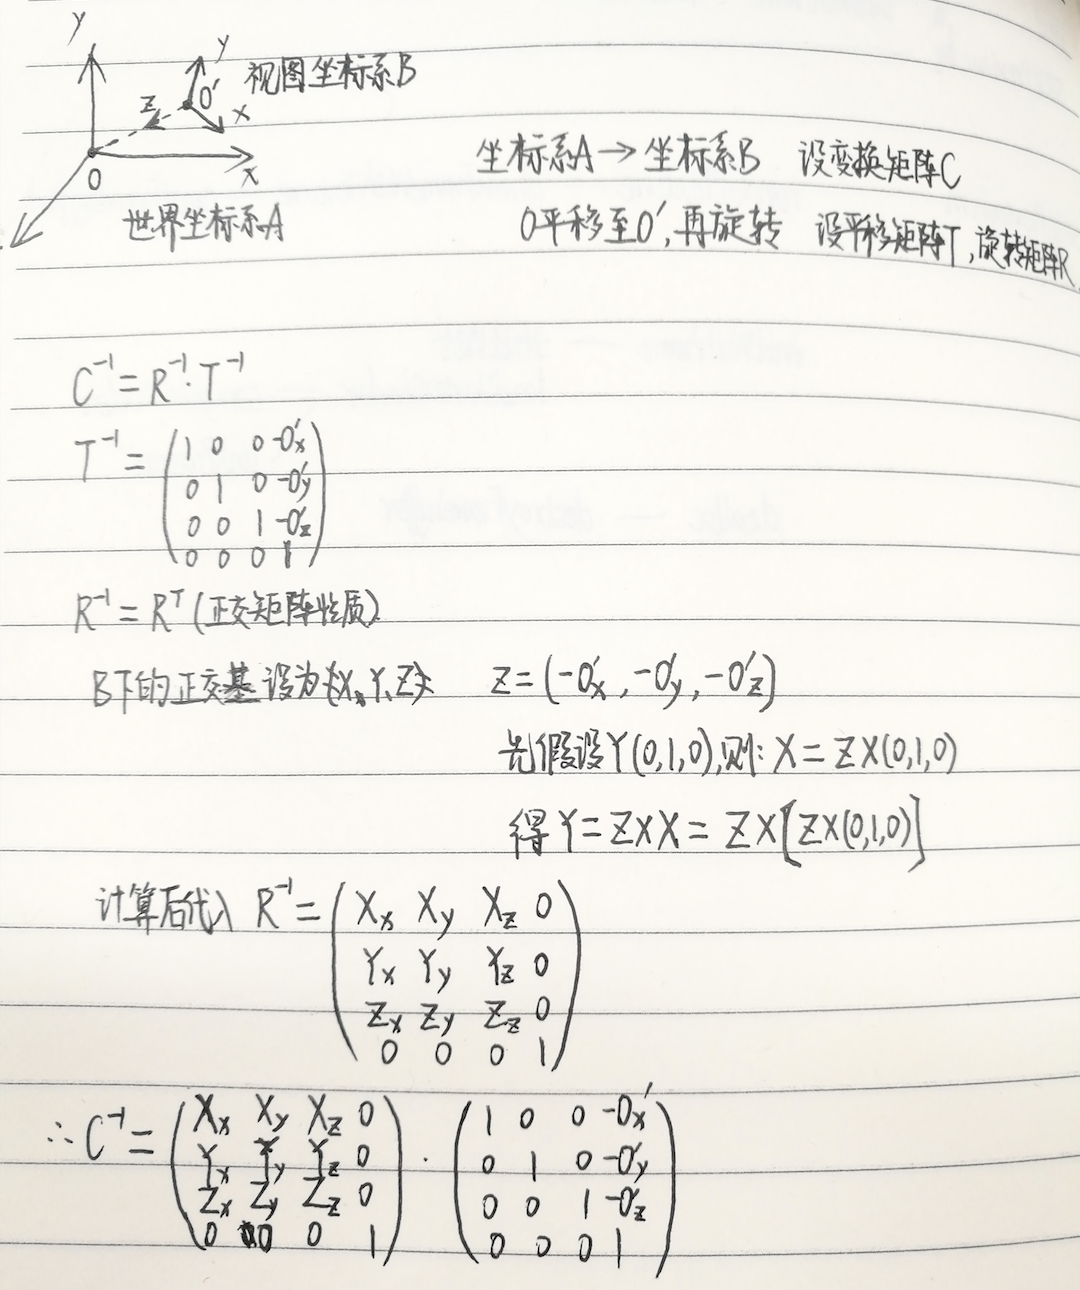 y
y
视图坐标系B
O'
Z
x
O
x
世界坐标系A
坐标系A→坐标系B 设变换矩阵C
O平移至O',再旋转 设平移矩阵T,旋转矩阵R
C⁻¹=R⁻¹·T⁻¹
T⁻¹=
1 0 0 -O'x
0 1 0 -O'y
0 0 1 -O'z
0 0 0 1
R⁻¹=Rᵀ(正交矩阵性质)
B下的正交基设为{X、Y、Z} Z=(-O'x,-O'y,-O'z)
先假设Y(0,1,0),则:X=Z×(0,1,0)
得Y=Z×X=Z×[Z×(0,1,0)]
计算后代入 R⁻¹=
Xx Xy Xz 0
Yx Yy Yz 0
Zx Zy Zz 0
0 0 0 1
∴C⁻¹=
Xx Xy Xz 0 · 1 0 0 -Ox'
Yx Yy Yz 0 0 1 0 -O'y
Zx Zy Zz 0 0 0 1 -O'z
0 0 0 1 0 0 0 1